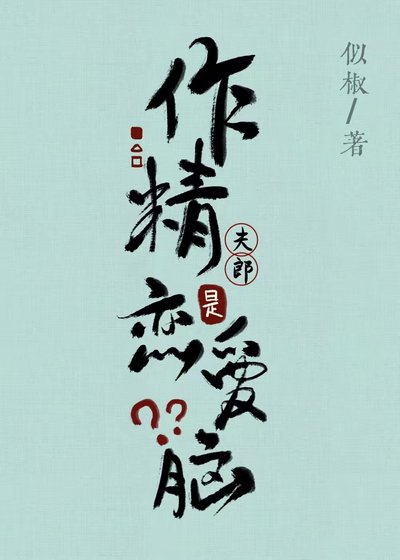 作精
夫郎
是
恋愛
??
脑
似椒/著